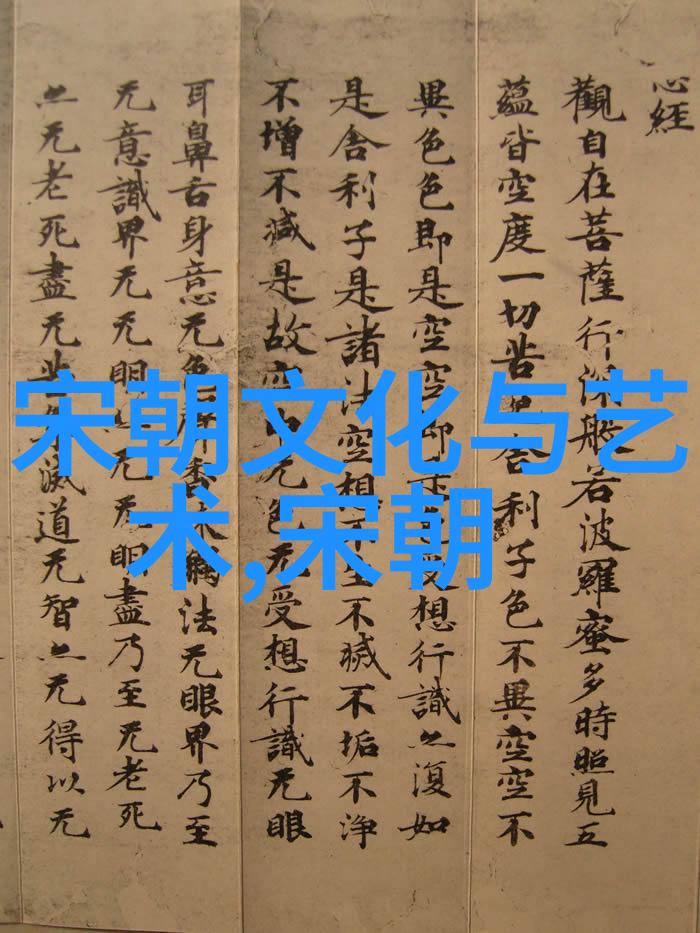 心經
觀自在菩薩行深般若波羅蜜多時照見五
蘊皆空度一切苦厄舍利子色不異空空不
異色色即是空空即是色受想行識亦復如
是舍利子是諸法空想不生不滅不垢不淨
不增不減是故空中无色无受想行識无眼
耳鼻舌身意无色聲香味觸法无眼界乃至
无意識界无无明亦无无明盡乃至无老死
亦无老死盡无苦集滅道无智亦无得以无
宋朝文化与艺
术,宋朝